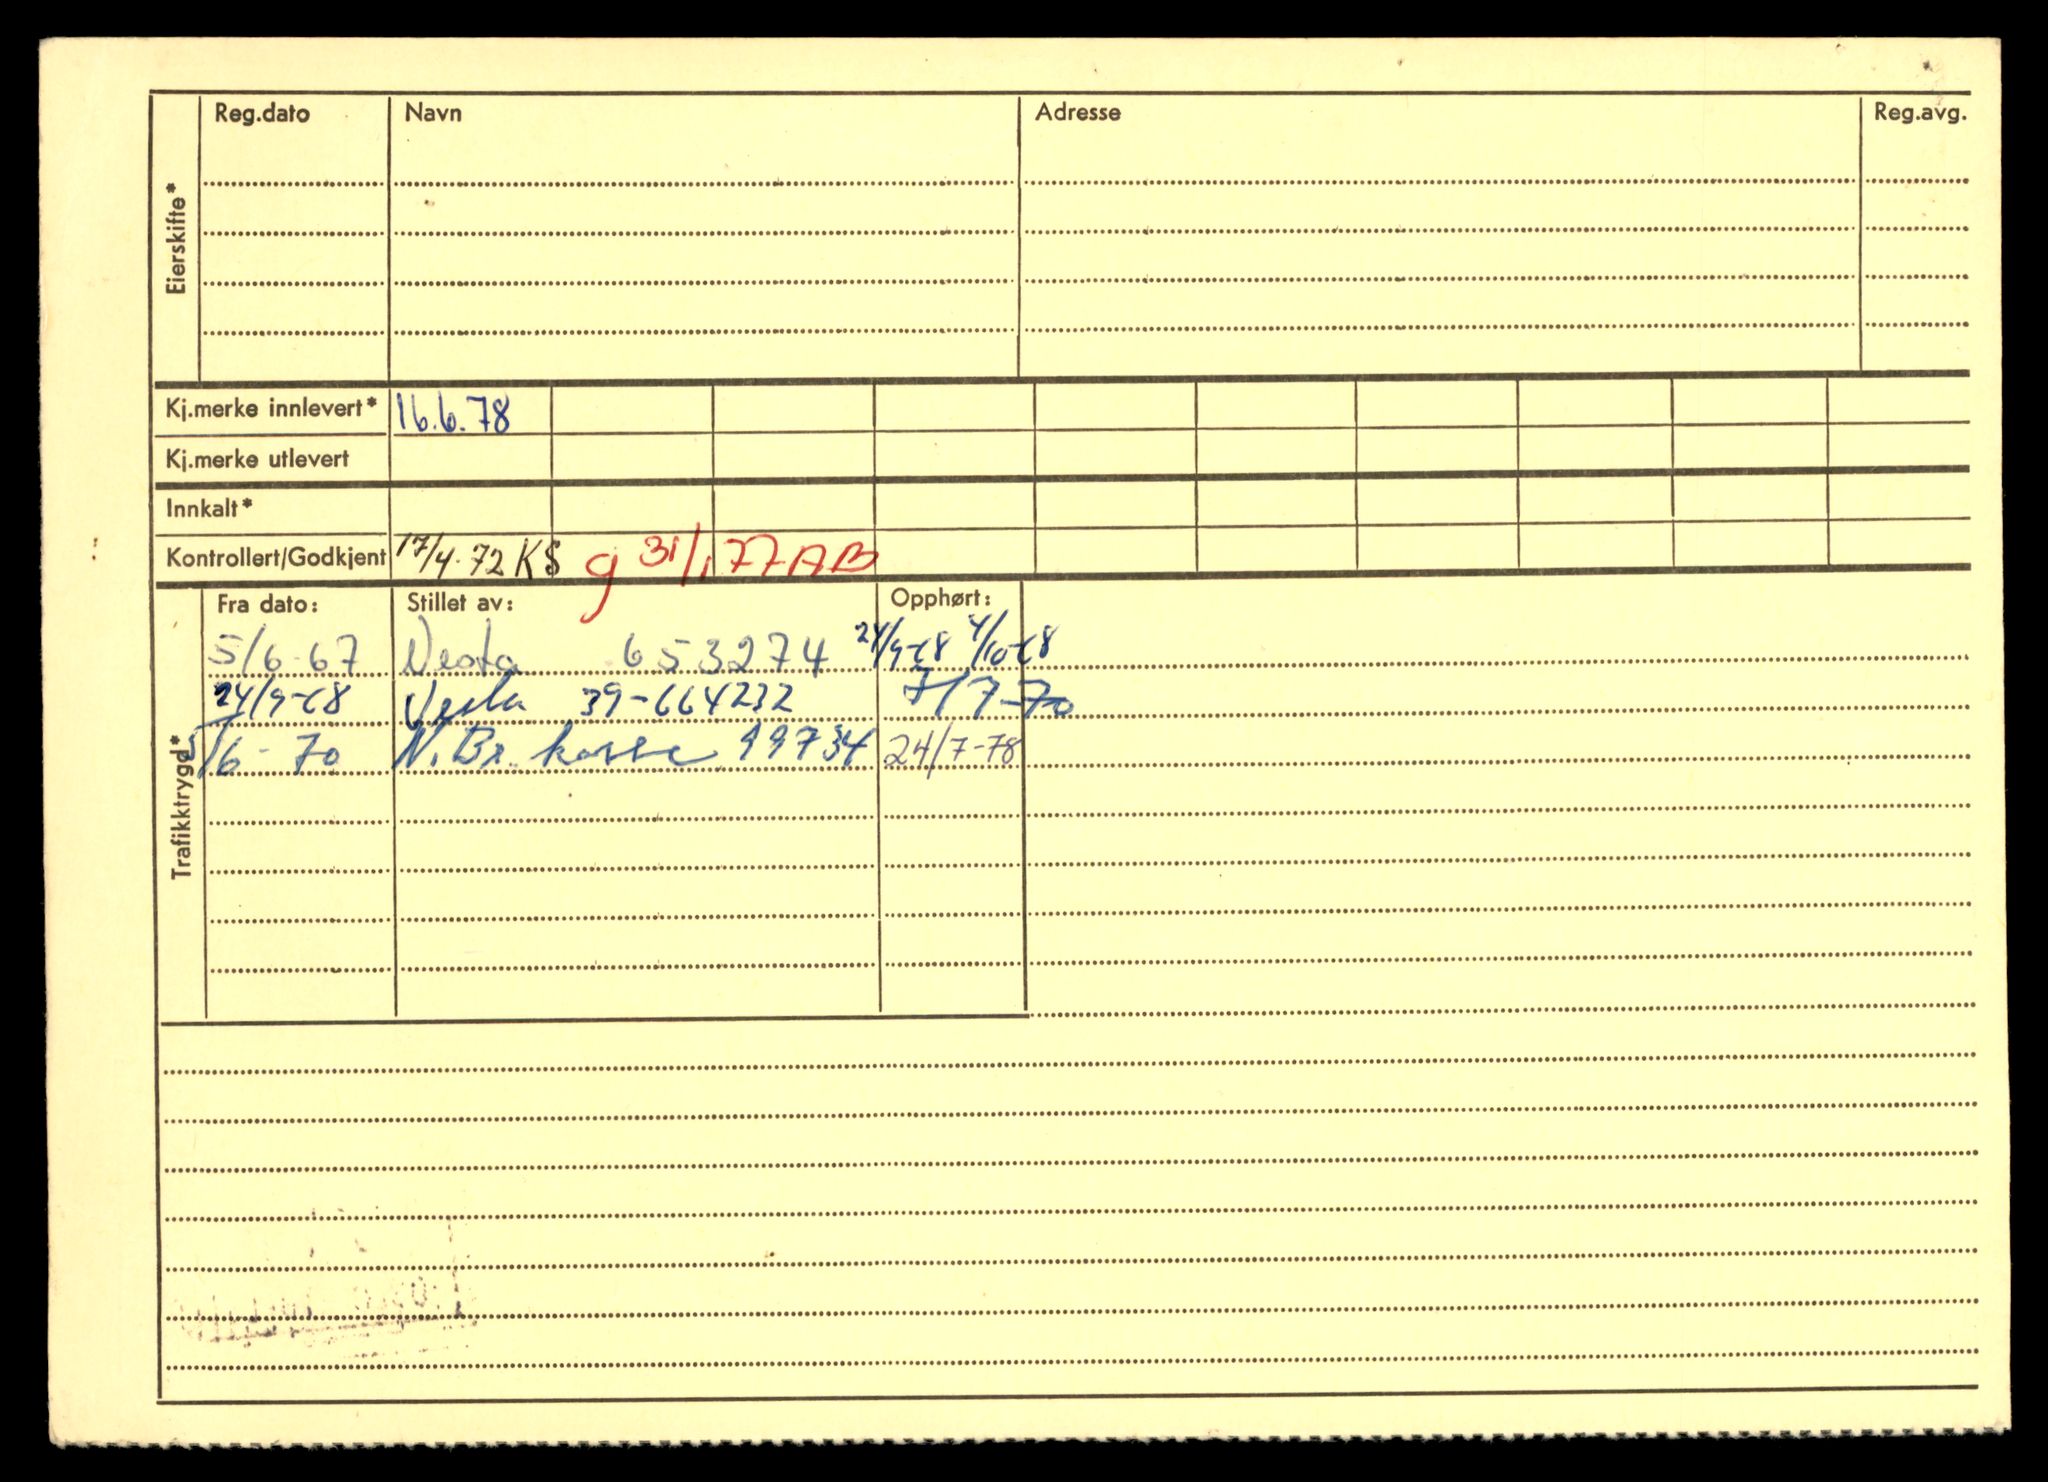 Eierskifte*
Reg.dato Navn Adresse Reg.avg.
Kj.merke innlevert* 16.6.78
Kj.merke utlevert
Innkalt*
Kontrollert/Godkjent 17/4.72 KS g 31/1 77 AB
Trafikktrygd*
Fra dato: Stillet av: Opphørt:
5/6-67 Vesta 653274 24/9-68 4/10-68
24/9-68 Vesta 39-664232 7/7-70
5/6-70 N. Br. kasse 99734 24/7-78